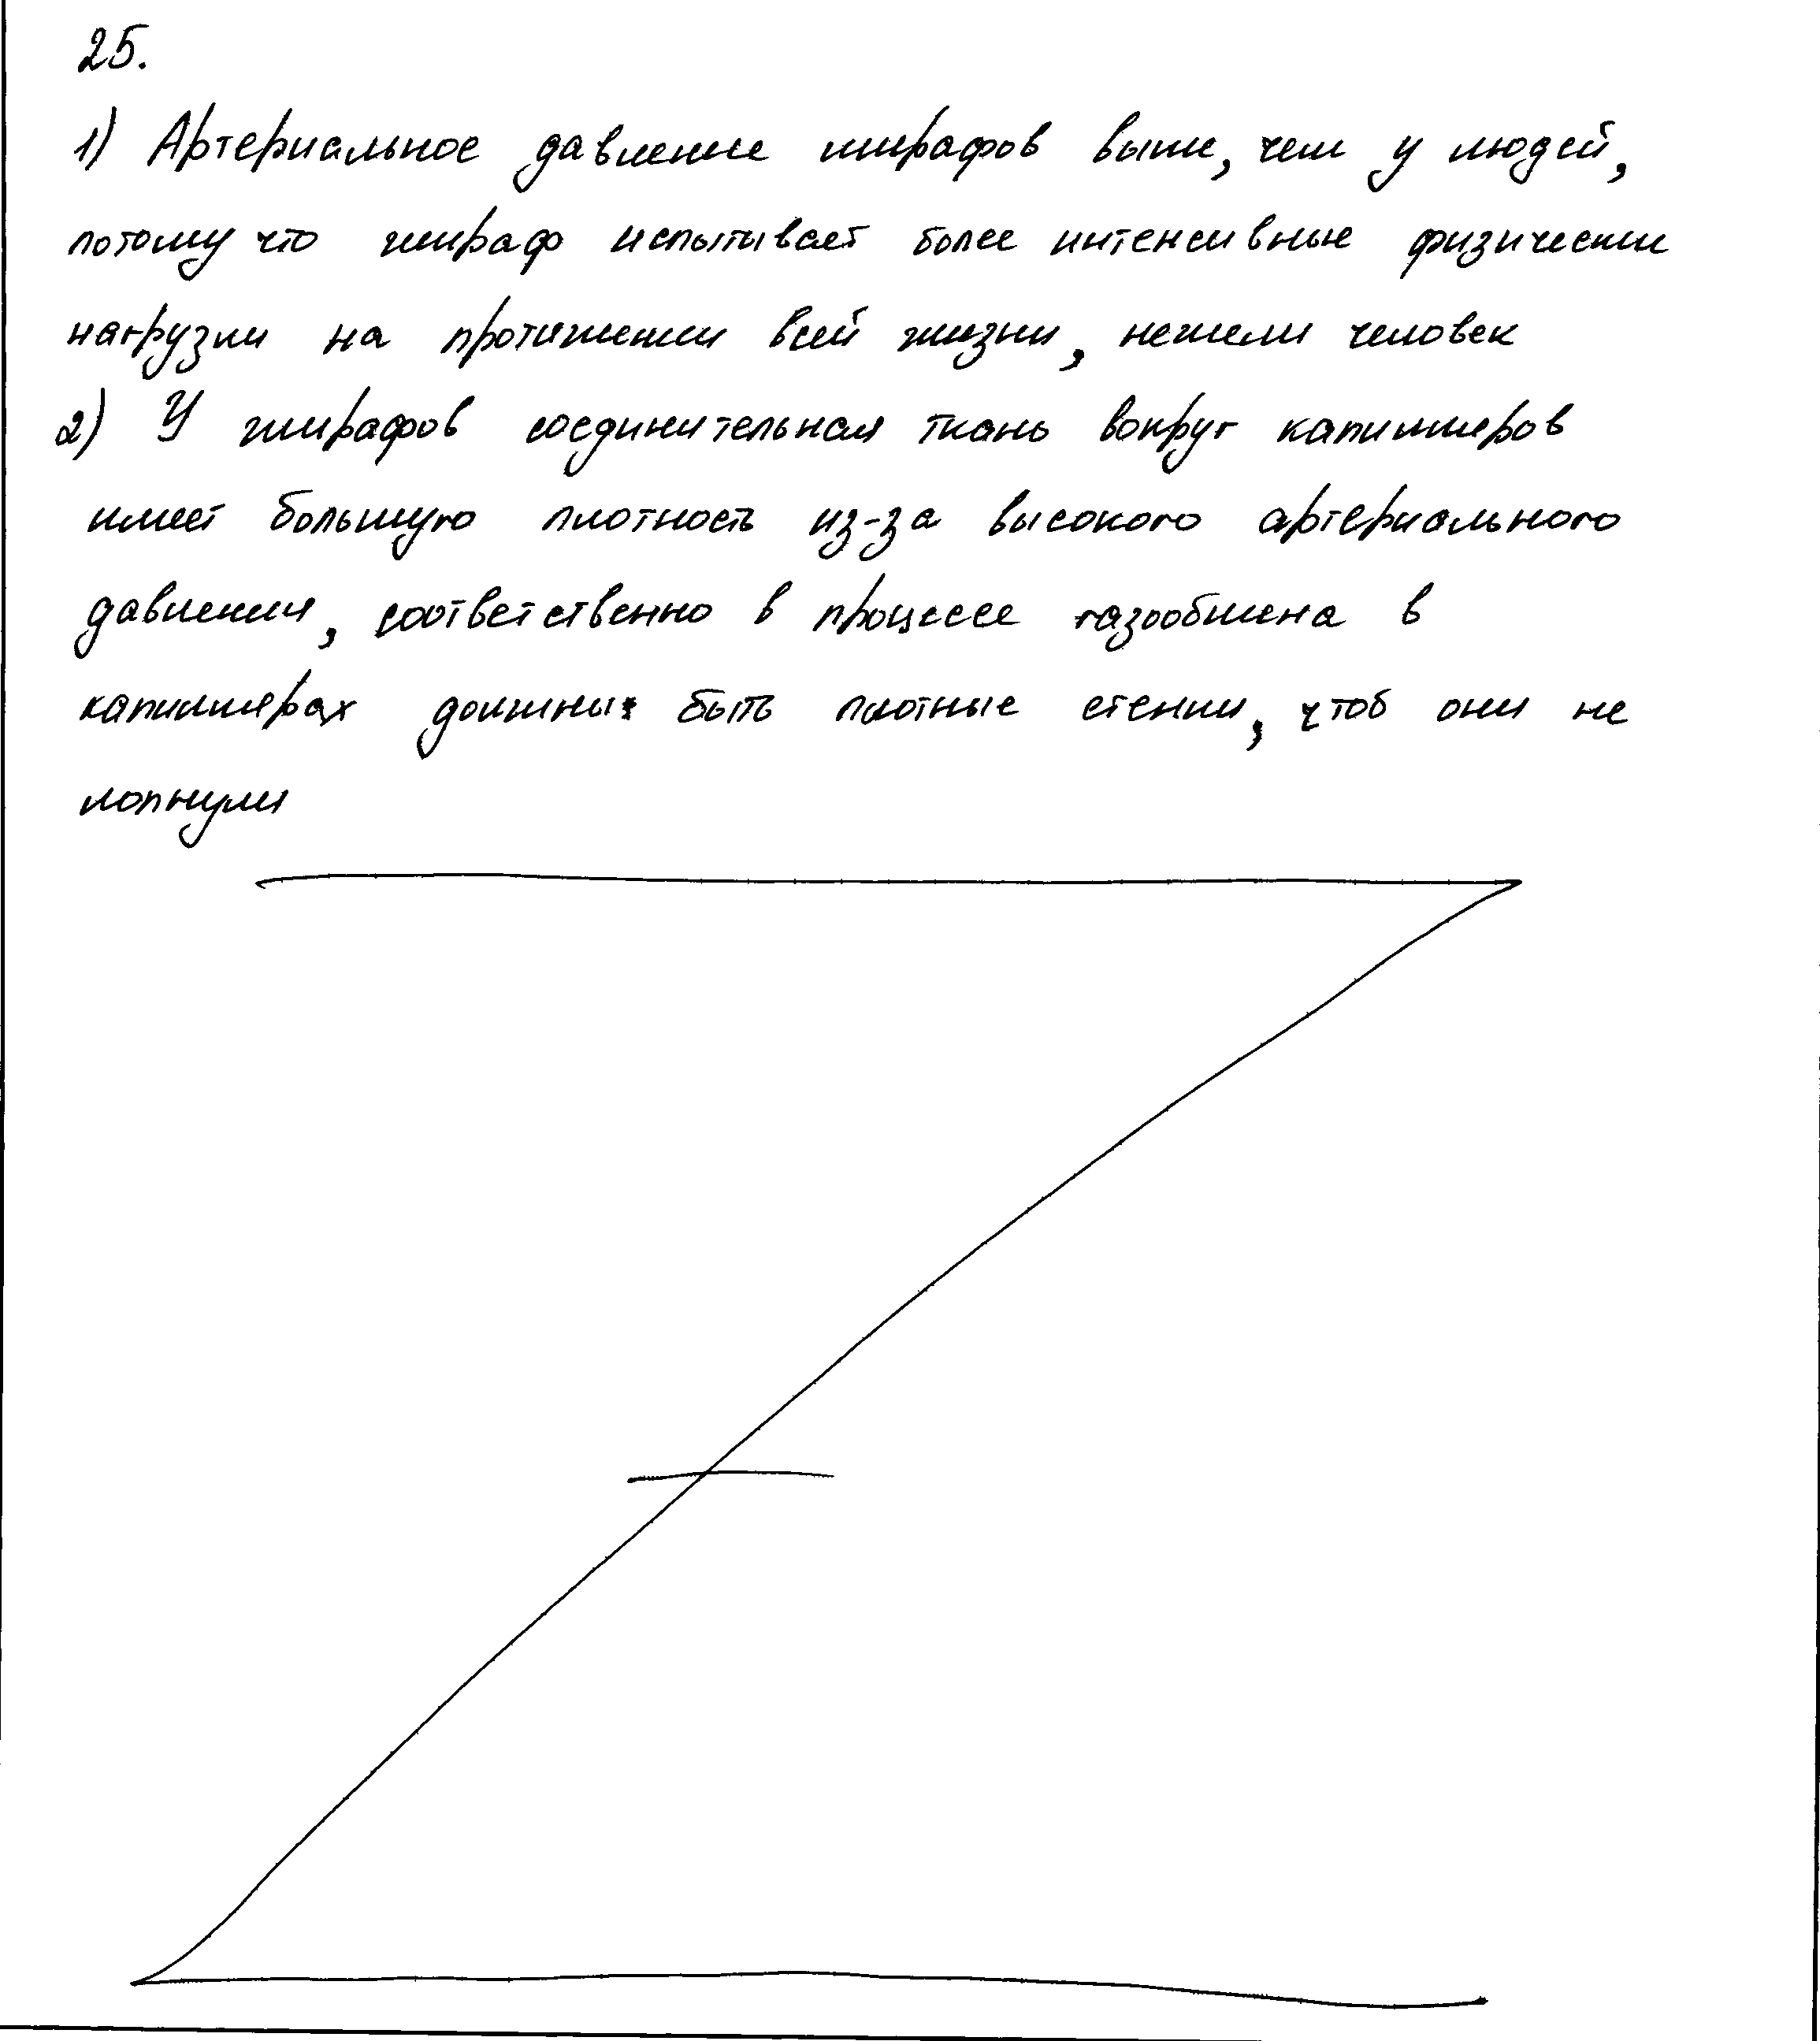 25.
1) Артериальное давление жирафов выше, чем у людей,
потому что жираф испытывает более интенсивные физические
нагрузки на протяжении всей жизни, нежели человек
2) У жирафов соединительная ткань вокруг капилляров
имеет большую плотность из-за высокого артериального
давления, соответственно в процессе газообмена в
капиллярах должны быть плотные стенки, чтоб они не
лопнули